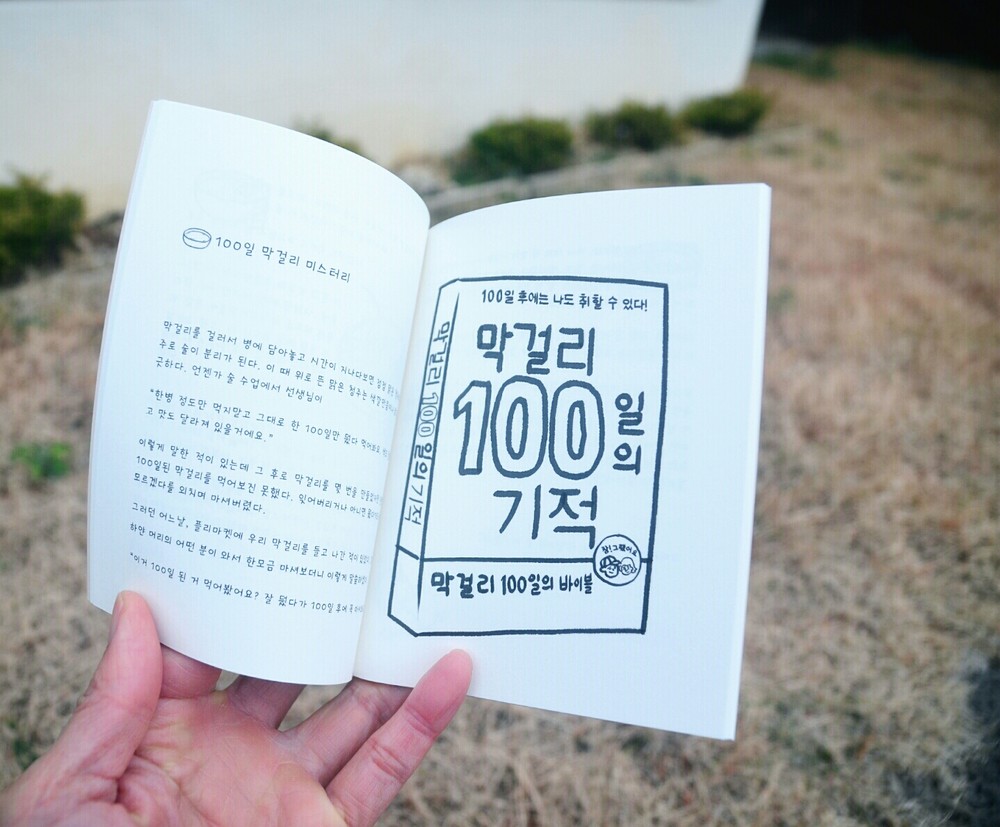 100일 막걸리 미스터리
막걸리를 걸러서 병에 담아놓고 시간이 지나다보면
주로 술이 분리가 된다. 이 때 위로 뜬 맑은 청주는
긋하다. 언젠가 술 수업에서 선생님이
"한병 정도만 먹지말고 그대로 한 100일만 뒀다 먹어봐요.
고 맛도 달라져 있을거에요."
이렇게 말한 적이 있는데 그 후로 막걸리를 몇 번을
100일된 막걸리를 먹어보진 못했다. 잊어버리거나 아니면
모르겠다를 외치며 마셔버렸다.
그러던 어느날, 플리마켓에 우리 막걸리를 들고 나간 적이
하얀 머리의 어떤 분이 와서 한모금 마셔보더니 이렇게
"이거 100일 된 거 먹어봤어요? 잘 뒀다가 100일 후에 꼭
막걸리 100일의 기적
100일 후에는 나도 취할 수 있다!
막걸리
100일의
기적
참! 그랬어요
막걸리 100일의 바이블